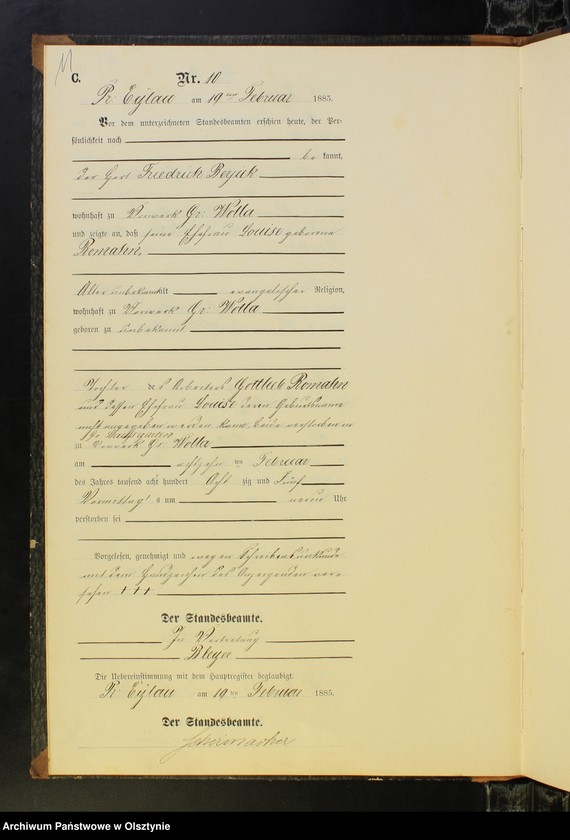 11
C.
Nr. 10
Pr. Eylau am 19ten Februar 1885.
Vor dem unterzeichneten Standesbeamten erschien heute, der Per-
sönlichkeit nach
be kannt,
der Friedrich
wohnhaft zu Vorwerk Gr. Wolla
und zeigte an, daß seine Ehefrau Louise geborene
Romahn,
Alter unbekannt alt evangelischer Religion,
wohnhaft zu Vorwerk Gr. Wolla
geboren zu unbekannt
Tochter des Arbeiters Gottlieb Romahn
und dessen Ehefrau Louise deren Geburtsname
nicht angegeben werden kann, beide verstorben in
zu Vorwerk Gr. Wolla
am achtzehn ten Februar
des Jahres tausend acht hundert acht zig und fünf
Vormittags um neun Uhr
verstorben sei
Vorgelesen, genehmigt und wegen Schreibensunkunde
mit dem Handzeichen des Anzeigenden ver-
sehen +++
Der Standesbeamte.
In Vertretung
Bleyer
Die Uebereinstimmung mit dem Hauptregister beglaubigt.
Pr. Eylau am 19ten Februar 1885.
Der Standesbeamte.
Archiwum Państwowe w Olsztynie